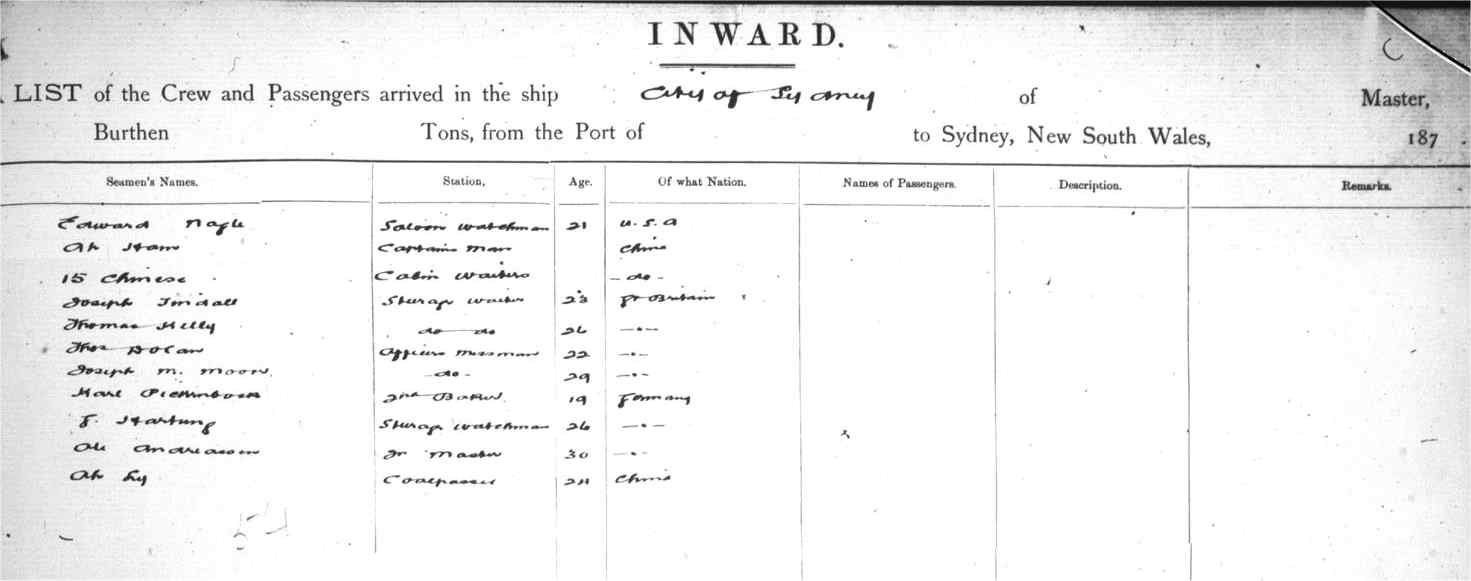 INWARD.
LIST of the Crew and Passengers arrived in the ship City of Sydney of Master,
Burthen Tons, from the Port of to Sydney, New South Wales, 187 .
Seamen's Names. Station, Age. Of what Nation. Names of Passengers. Description. Remarks.
Edward Nagle Saloon watchman 21 U.S.A
Ah Ham Captains man China
15 Chinese Cabin waiters - do -
Joseph Tindall Sturage waiter 23 Gt Britain
Thomas Kelly do do 26 - " -
Thos Dolan Officers messman 22 - " -
Joseph M. Moore - do - 29 - " -
Karl 2nd Baker 19 Germany
F. Hartung Sturage watchman 26 - " -
Ole Andreasen Qr Master 30 - " -
Ah Sy Coalpasser 24 China